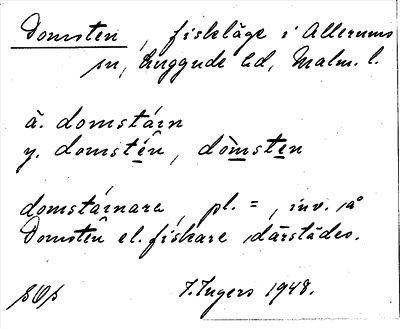 Domsten, fiskläge i Allerums
sn, Luggude hd, Malm. l.
ä. domstáin
y. domstén, dòmsten
domstáinare, pl. =, inv. å
Domsten el. fiskare därstädes.
I. Ingers 1948.